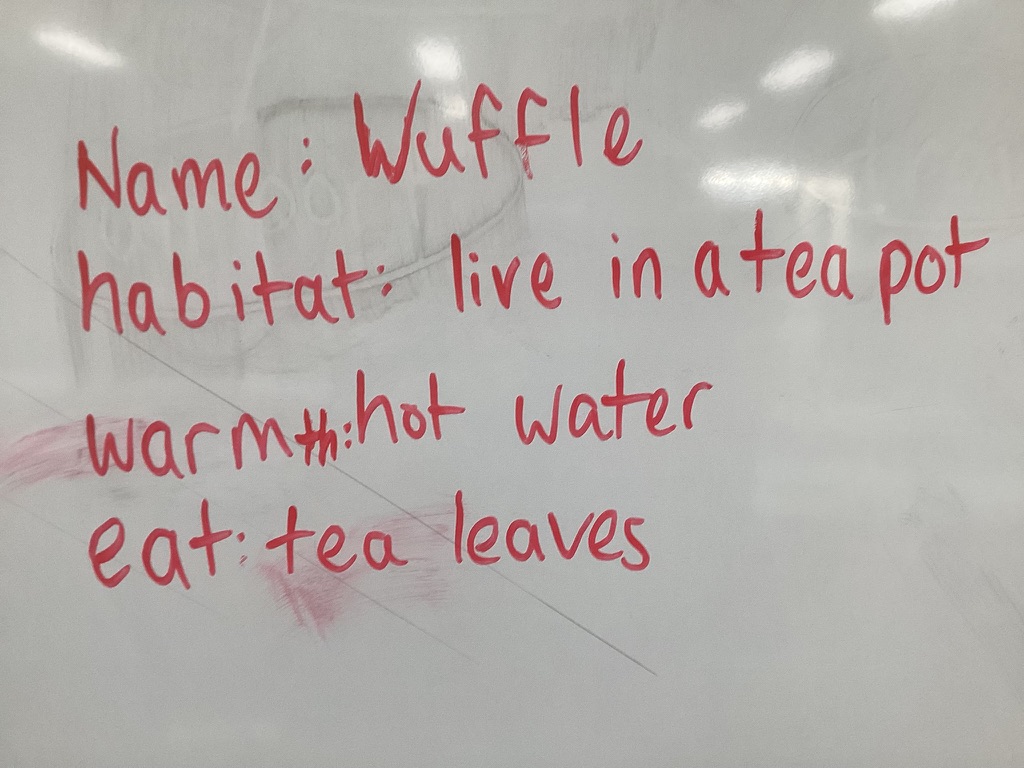 Name: Wuffle
habitat: live in a tea pot
warmth: hot water
eat: tea leaves